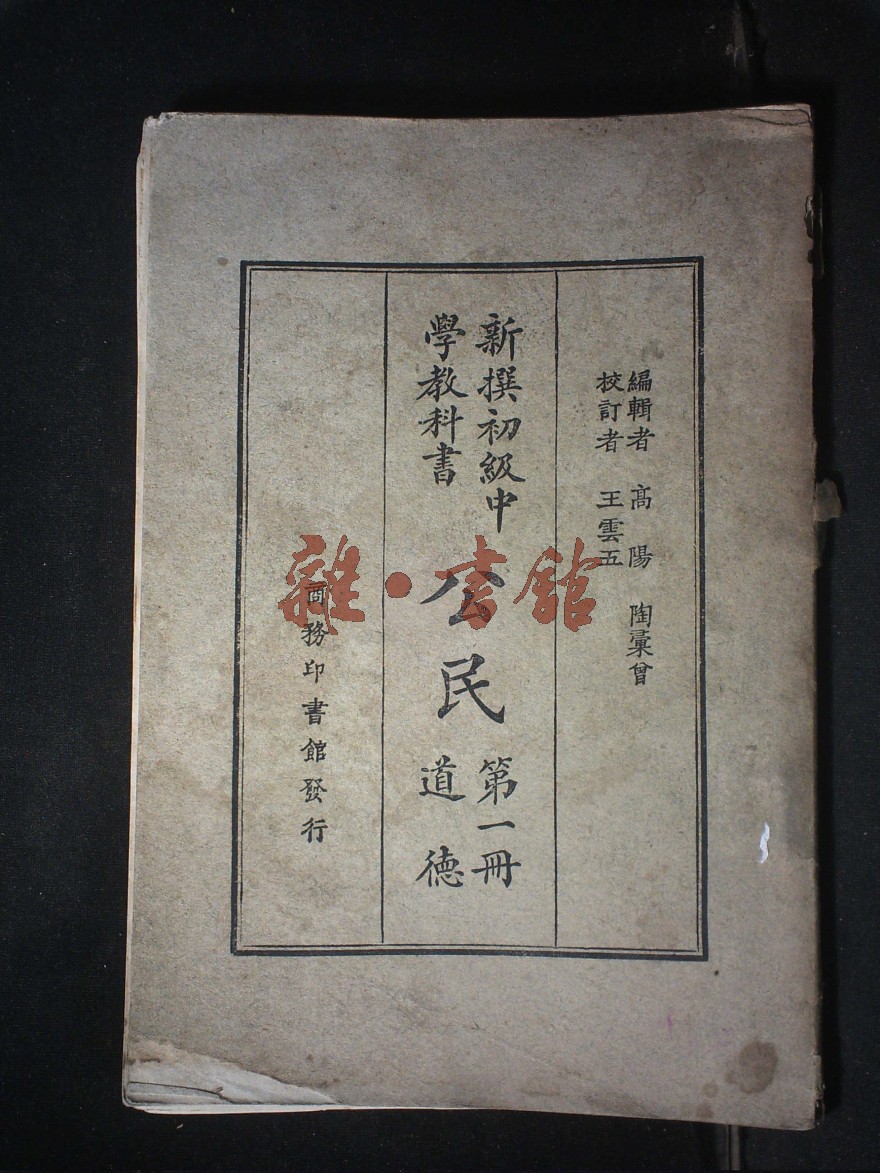 編輯者 高陽 陶彙曾
校訂者 王雲五
新撰初級中
學教科書
公民
第一冊
道德
商務印書館發行
雜·書館